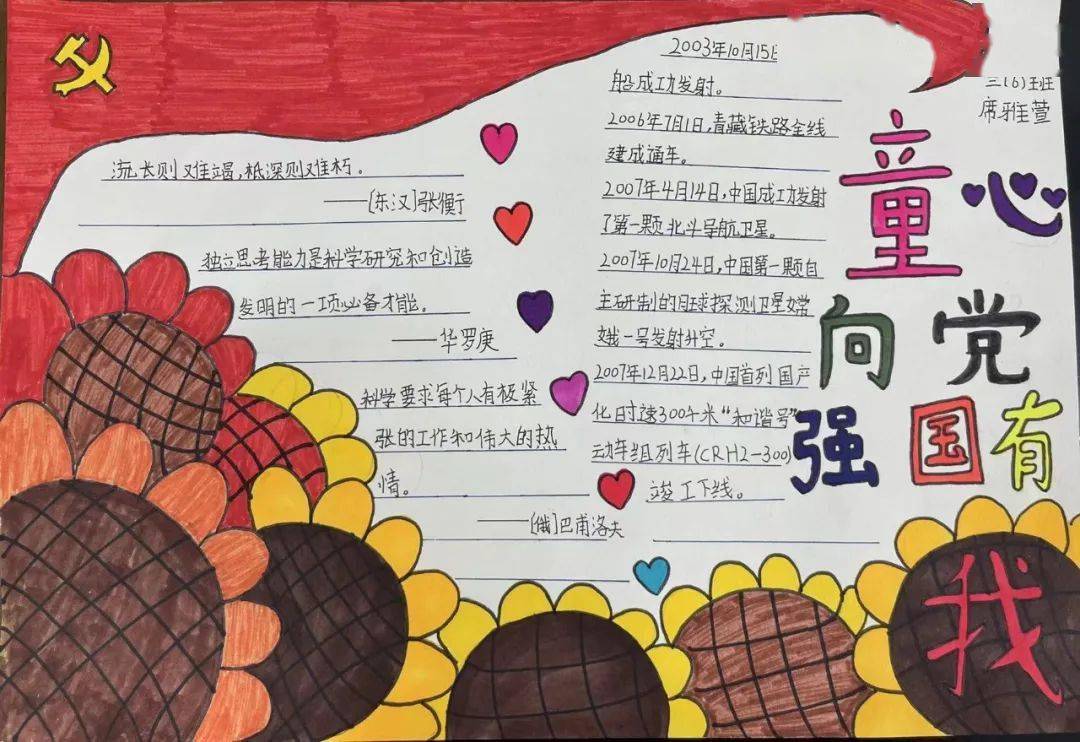 流长则难竭,柢深则难朽。
——[东汉]张衡
独立思考能力是科学研究和创造
发明的一项必备才能。
——华罗庚
科学要求每个人有极紧
张的工作和伟大的热
情。
——[俄]巴甫洛夫
2003年10月15日
船成功发射。
2006年7月1日,青藏铁路全线
建成通车。
2007年4月14日,中国成功发射
了第一颗北斗导航卫星。
2007年10月24日,中国第一颗自
主研制的月球探测卫星嫦
娥一号发射升空。
2007年12月22日,中国首列国产
化时速300千米“和谐号”
动车组列车(CRH2-300)
竣工下线。
三(6)班
席雅萱
童心
向党
强国有
我